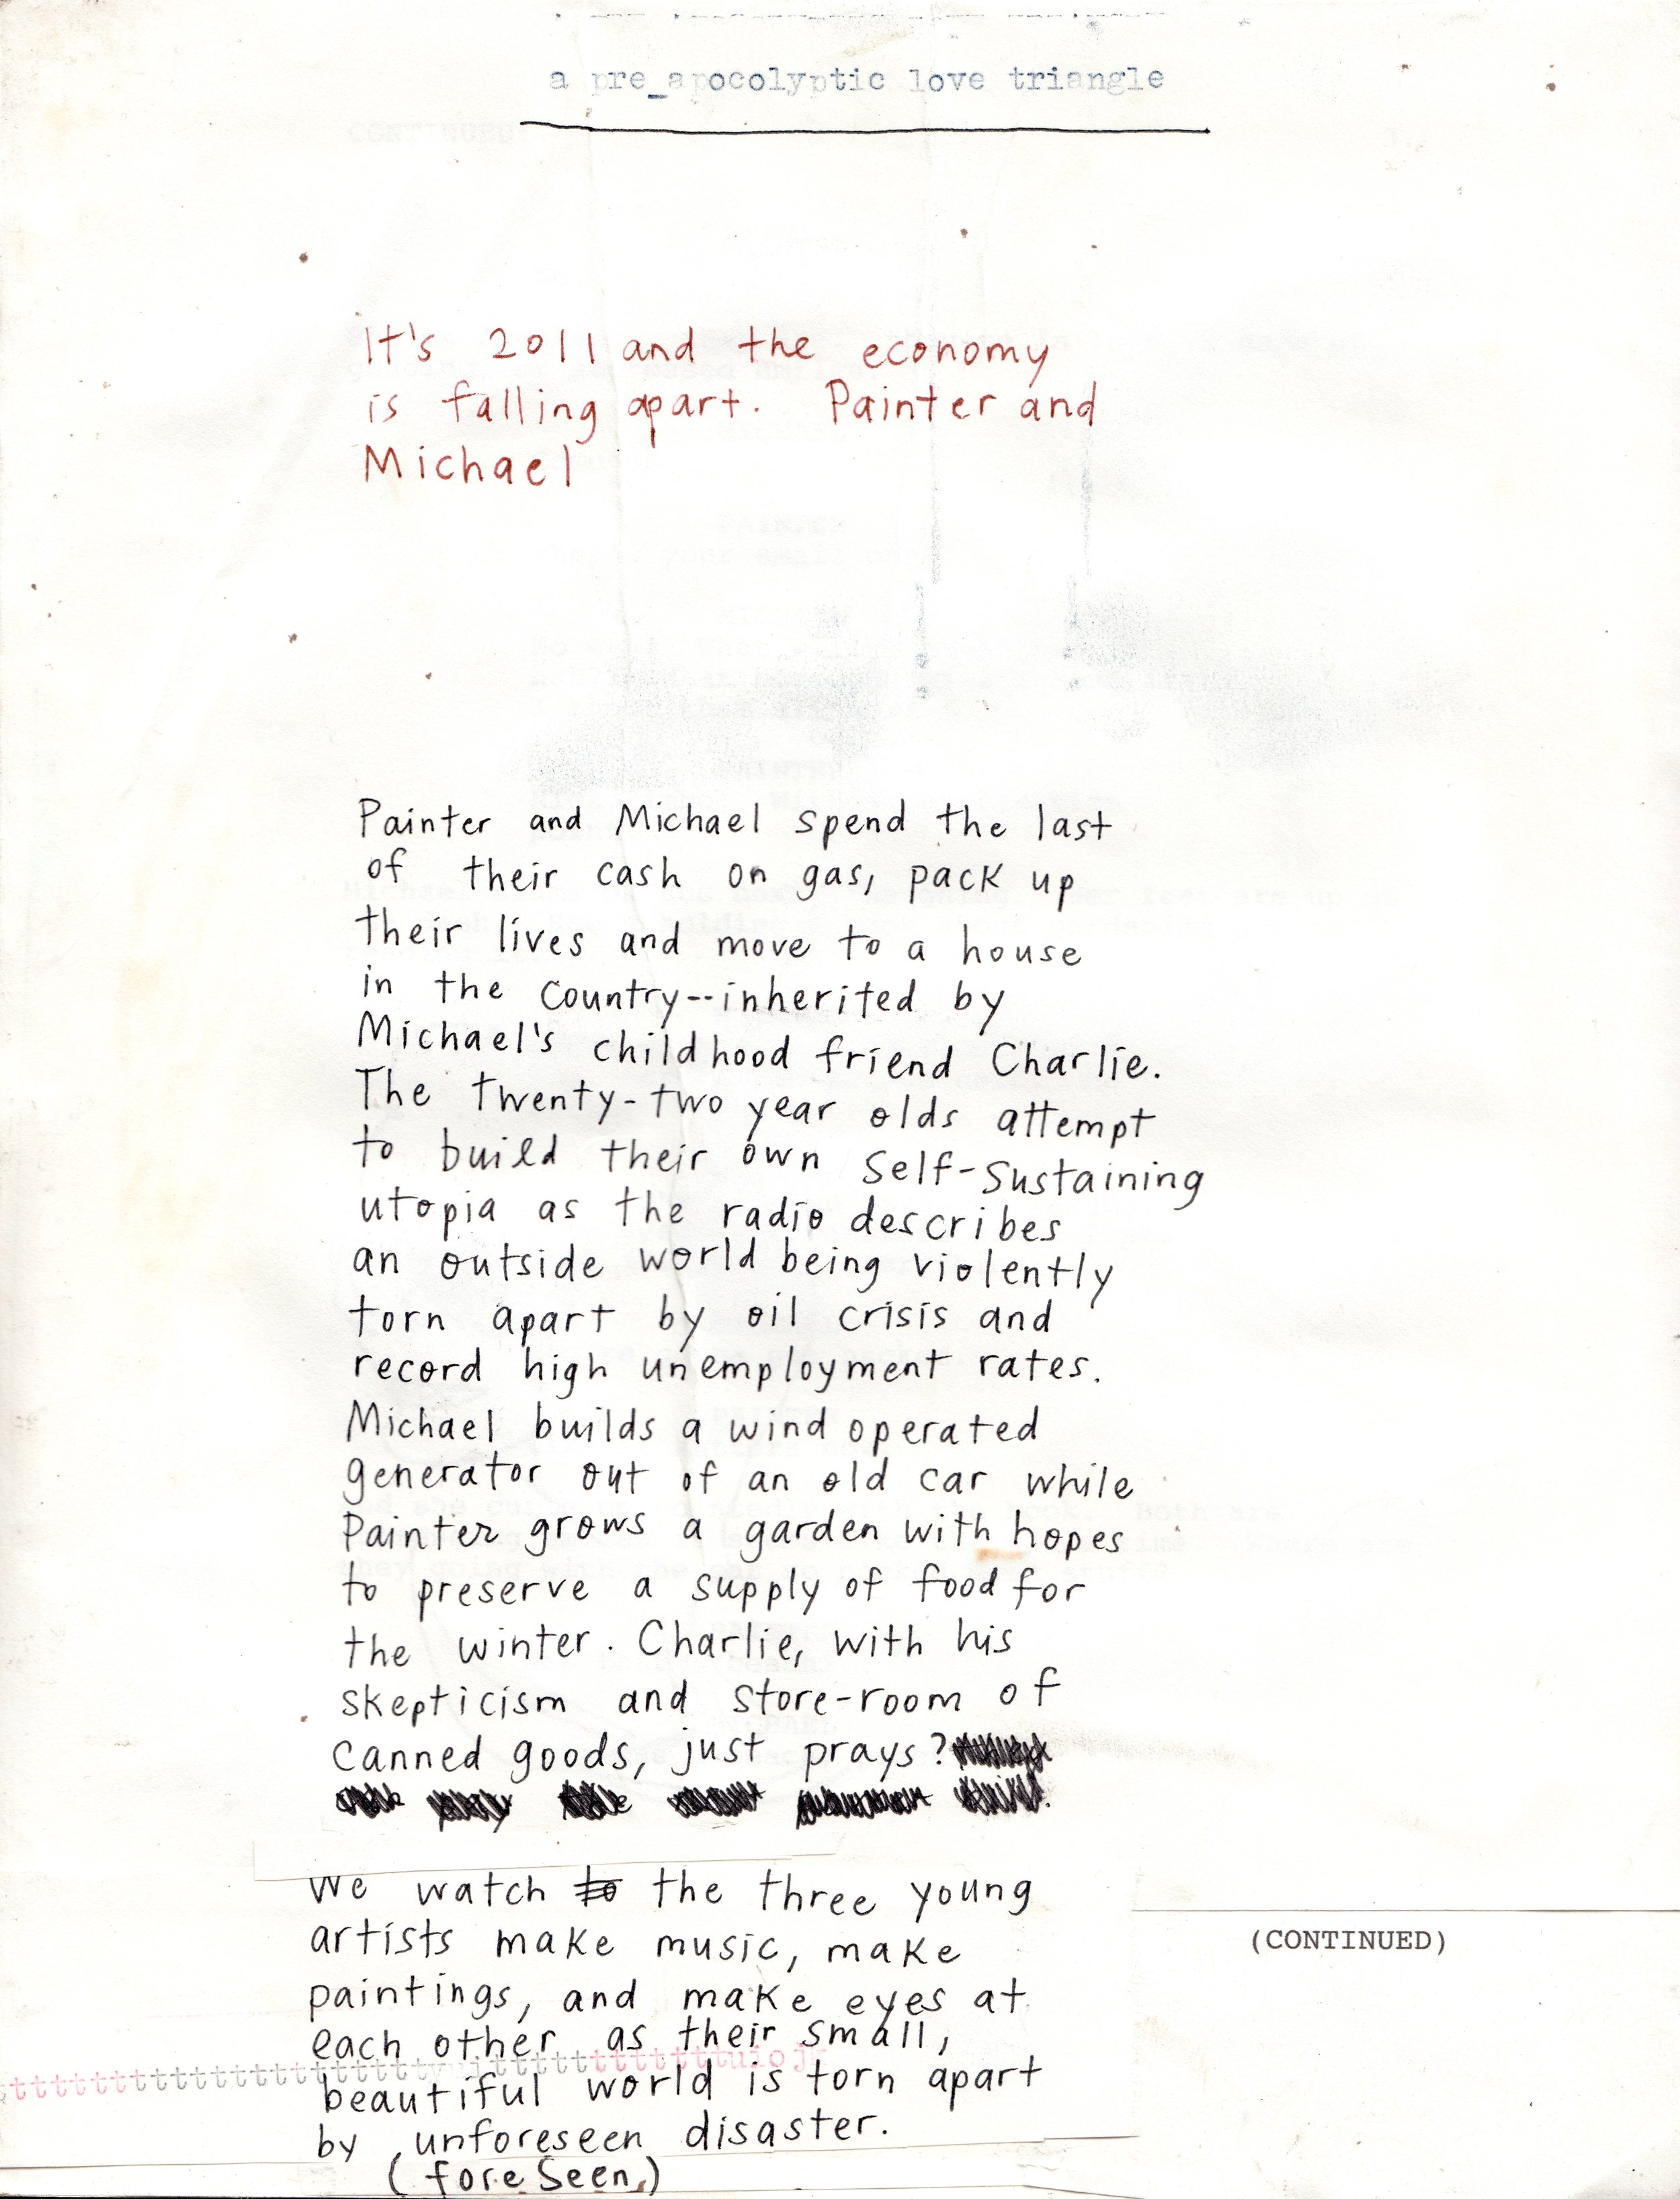 a pre_apocolyptic love triangle
It's 2011 and the economy
is falling apart. Painter and
Michael
Painter and Michael spend the last
of their cash on gas, pack up
their lives and move to a house
in the country--inherited by
Michael's childhood friend Charlie.
The twenty-two year olds attempt
to build their own self-sustaining
utopia as the radio describes
an outside world being violently
torn apart by oil crisis and
record high unemployment rates.
Michael builds a wind operated
generator out of an old car while
Painter grows a garden with hopes
to preserve a supply of food for
the winter. Charlie, with his
skepticism and store-room of
canned goods, just prays?
We watch to the three young
artists make music, make
(CONTINUED)
paintings, and make eyes at
each other as their small,
tttttttttttttttttttttyuitttttttttttttuioj
beautiful world is torn apart
by unforeseen disaster.
(foreseen)